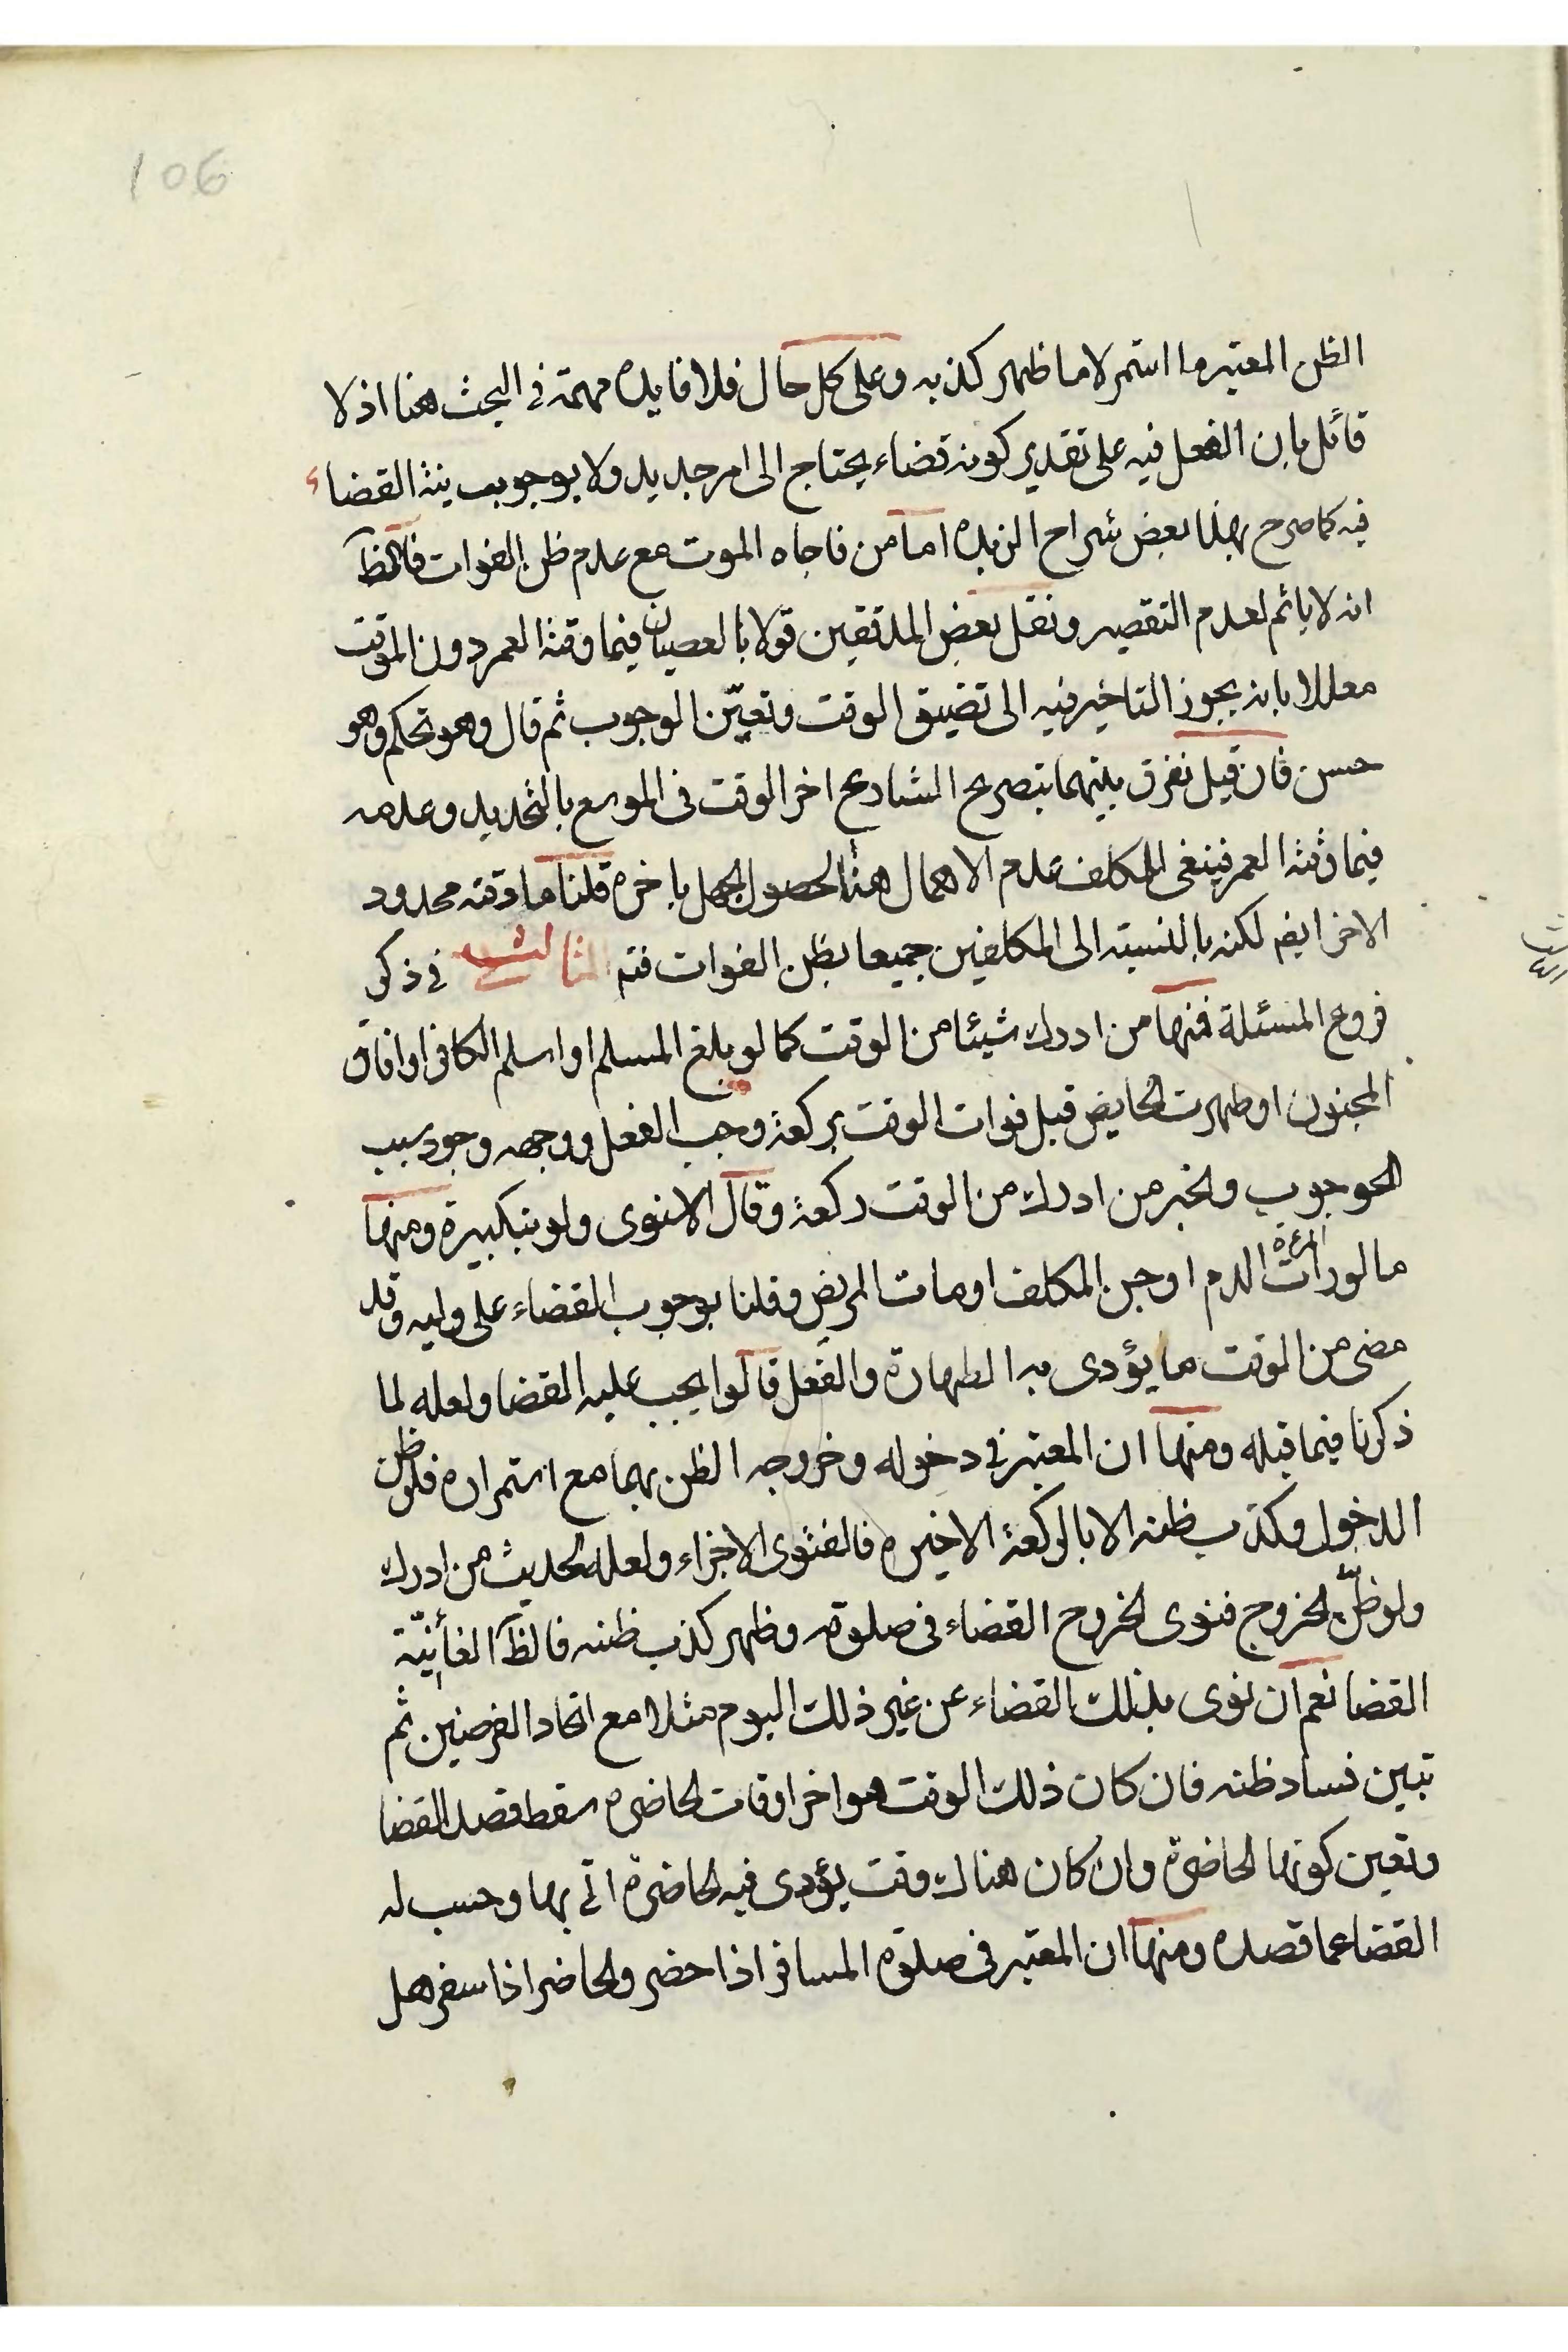 106
الظن المعتبر ما استمر لا ما ظهر كذبه وعلى كل حال فلا فايدة مهمة في البحث هنا اذ لا
قائل بان الفعل فيه على تقدير كونه قضاء يحتاج الى امر جديد ولا بوجوب نية القضاء
فيه كما صرح بهذا بعض شراح الزبدة اما من فاجاه الموت مع عدم ظن الفوات فالظ
انه لا ياثم لعدم التقصير ونقل بعض المدققين قولا بالعصيان فيما وقته العمر دون الموقت
معللا بانه يجوز التاخير فيه الى تضييق الوقت وتعيّن الوجوب ثم قال وهو تحكم وهو
حسن فان قيل نفرق بينهما بتصريح الشارع اخر الوقت في الموسع بالتحديد وعدمه
فيما وقته العمر فينبغي للمكلف عدم الاهمال هنا لحصول الجهل باخره قلنا ما وقته محدود
الاخر ايضم لكنه بالنسبة الى المكلفين جميعا بظن الفوات فتم الثالث في ذكر
فروع المسئلة فمنها من ادرك شيئا من الوقت كما لو بلغ المسلم او اسلم الكافر او افاق
المجنون او طهرت الحايض قبل فوات الوقت بركعة وجب الفعل ووجهه وجود سبب
الوجوب ولخبر من ادرك من الوقت ركعة وقال الاسنوى ولو بتكبيرة ومنها
ما لو رأت المرءة الدم او جن المكلف او مات المريض وقلنا بوجوب القضاء على وليه وقد
مضى من الوقت ما يؤدى به الطهارة والفعل قالوا يجب عليه القضا ولعله لما
ذكرنا فيما قبله ومنها ان المعتبر في دخوله وخروجه الظن بهما مع استمراره فلو ظن
الدخول وكذب ظنه الا بالركعة الاخيرة فالفتوى الاجزاء ولعله لحديث من ادرك
ولو ظنّ الخروج فنوى الخروج القضاء في صلوته وظهر كذب ظنه فالظ الغا نيّة
القضا نعم ان نوى بذلك القضاء عن غير ذلك اليوم مثلا مع اتحاد الفرضين ثم
تبين فساد ظنه فان كان ذلك الوقت هو اخر اوقات الحاضرة سقط قصد القضا
وتعين كونها الحاضرة وان كان هناك وقت يؤدى فيه الحاضرة اتى بها وحسب له
القضا عما قصده ومنها ان المعتبر في صلوة المسافر اذا حضر والحاضر اذا سفر هل